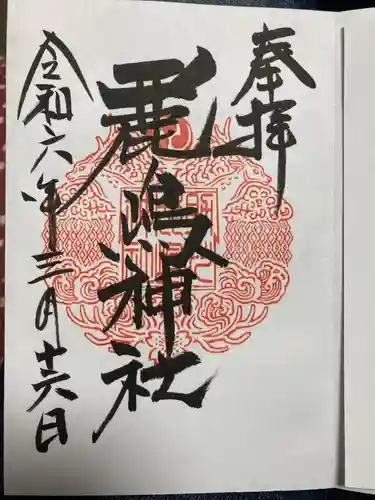 奉拝
鹿嶋神社
令和六年三月十六日